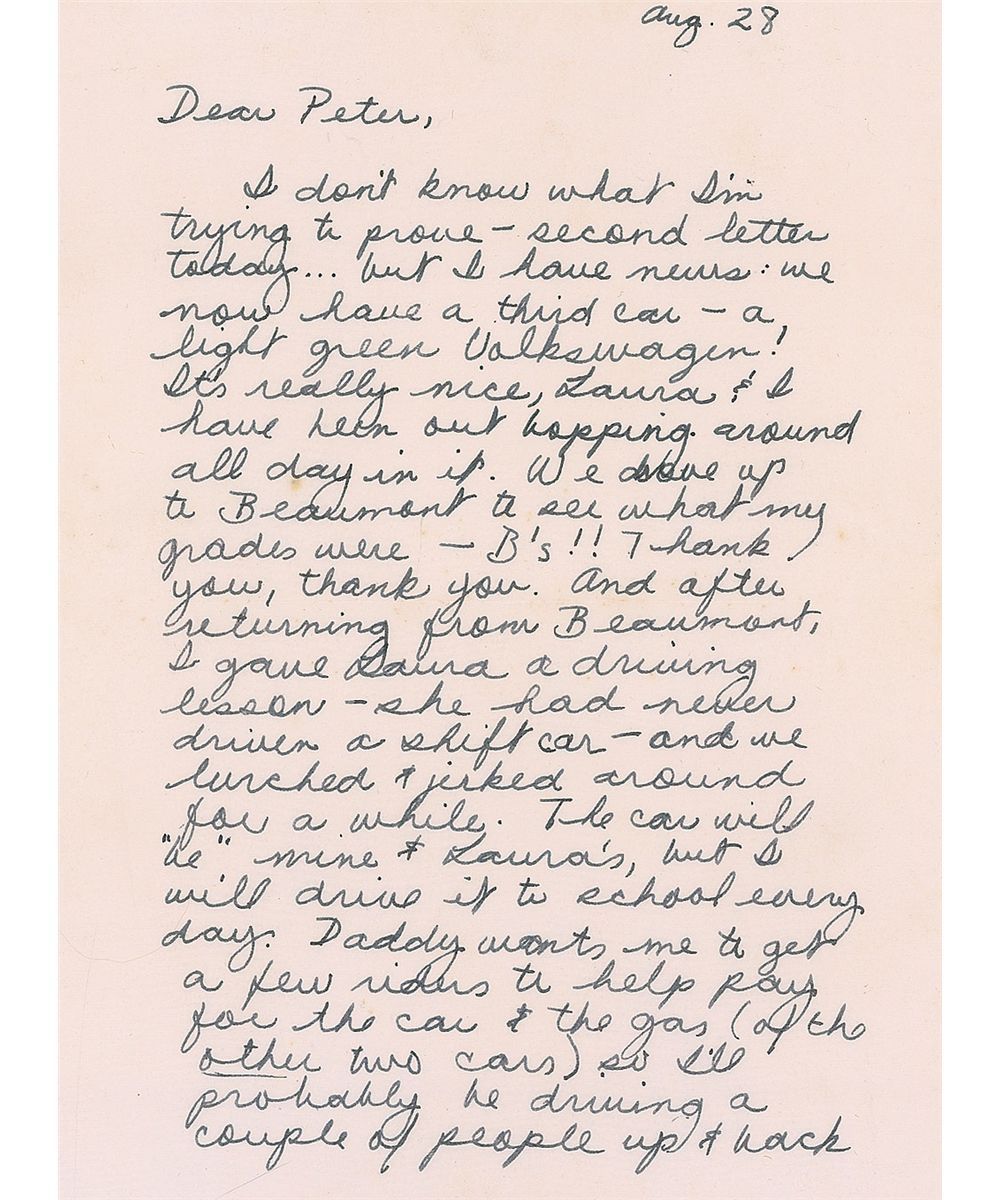 Aug. 28
Dear Peter,
I don't know what I'm
trying to prove – second letter
today... but I have news: we
now have a third car – a
light green Volkswagen!
It's really nice, Laura & I
have been out bopping around
all day in it. We drove up
to Beaumont to see what my
grades were – B's!! Thank
you, thank you. And after
returning from Beaumont,
I gave Laura a driving
lesson – she had never
driven a shift car – and we
lurched & jerked around
for a while. The car will
"be" mine & Laura's, but I
will drive it to school every
day. Daddy wants me to get
a few riders to help pay
for the car & the gas (of the
other two cars) so I'll
probably be driving a
couple of people up & back